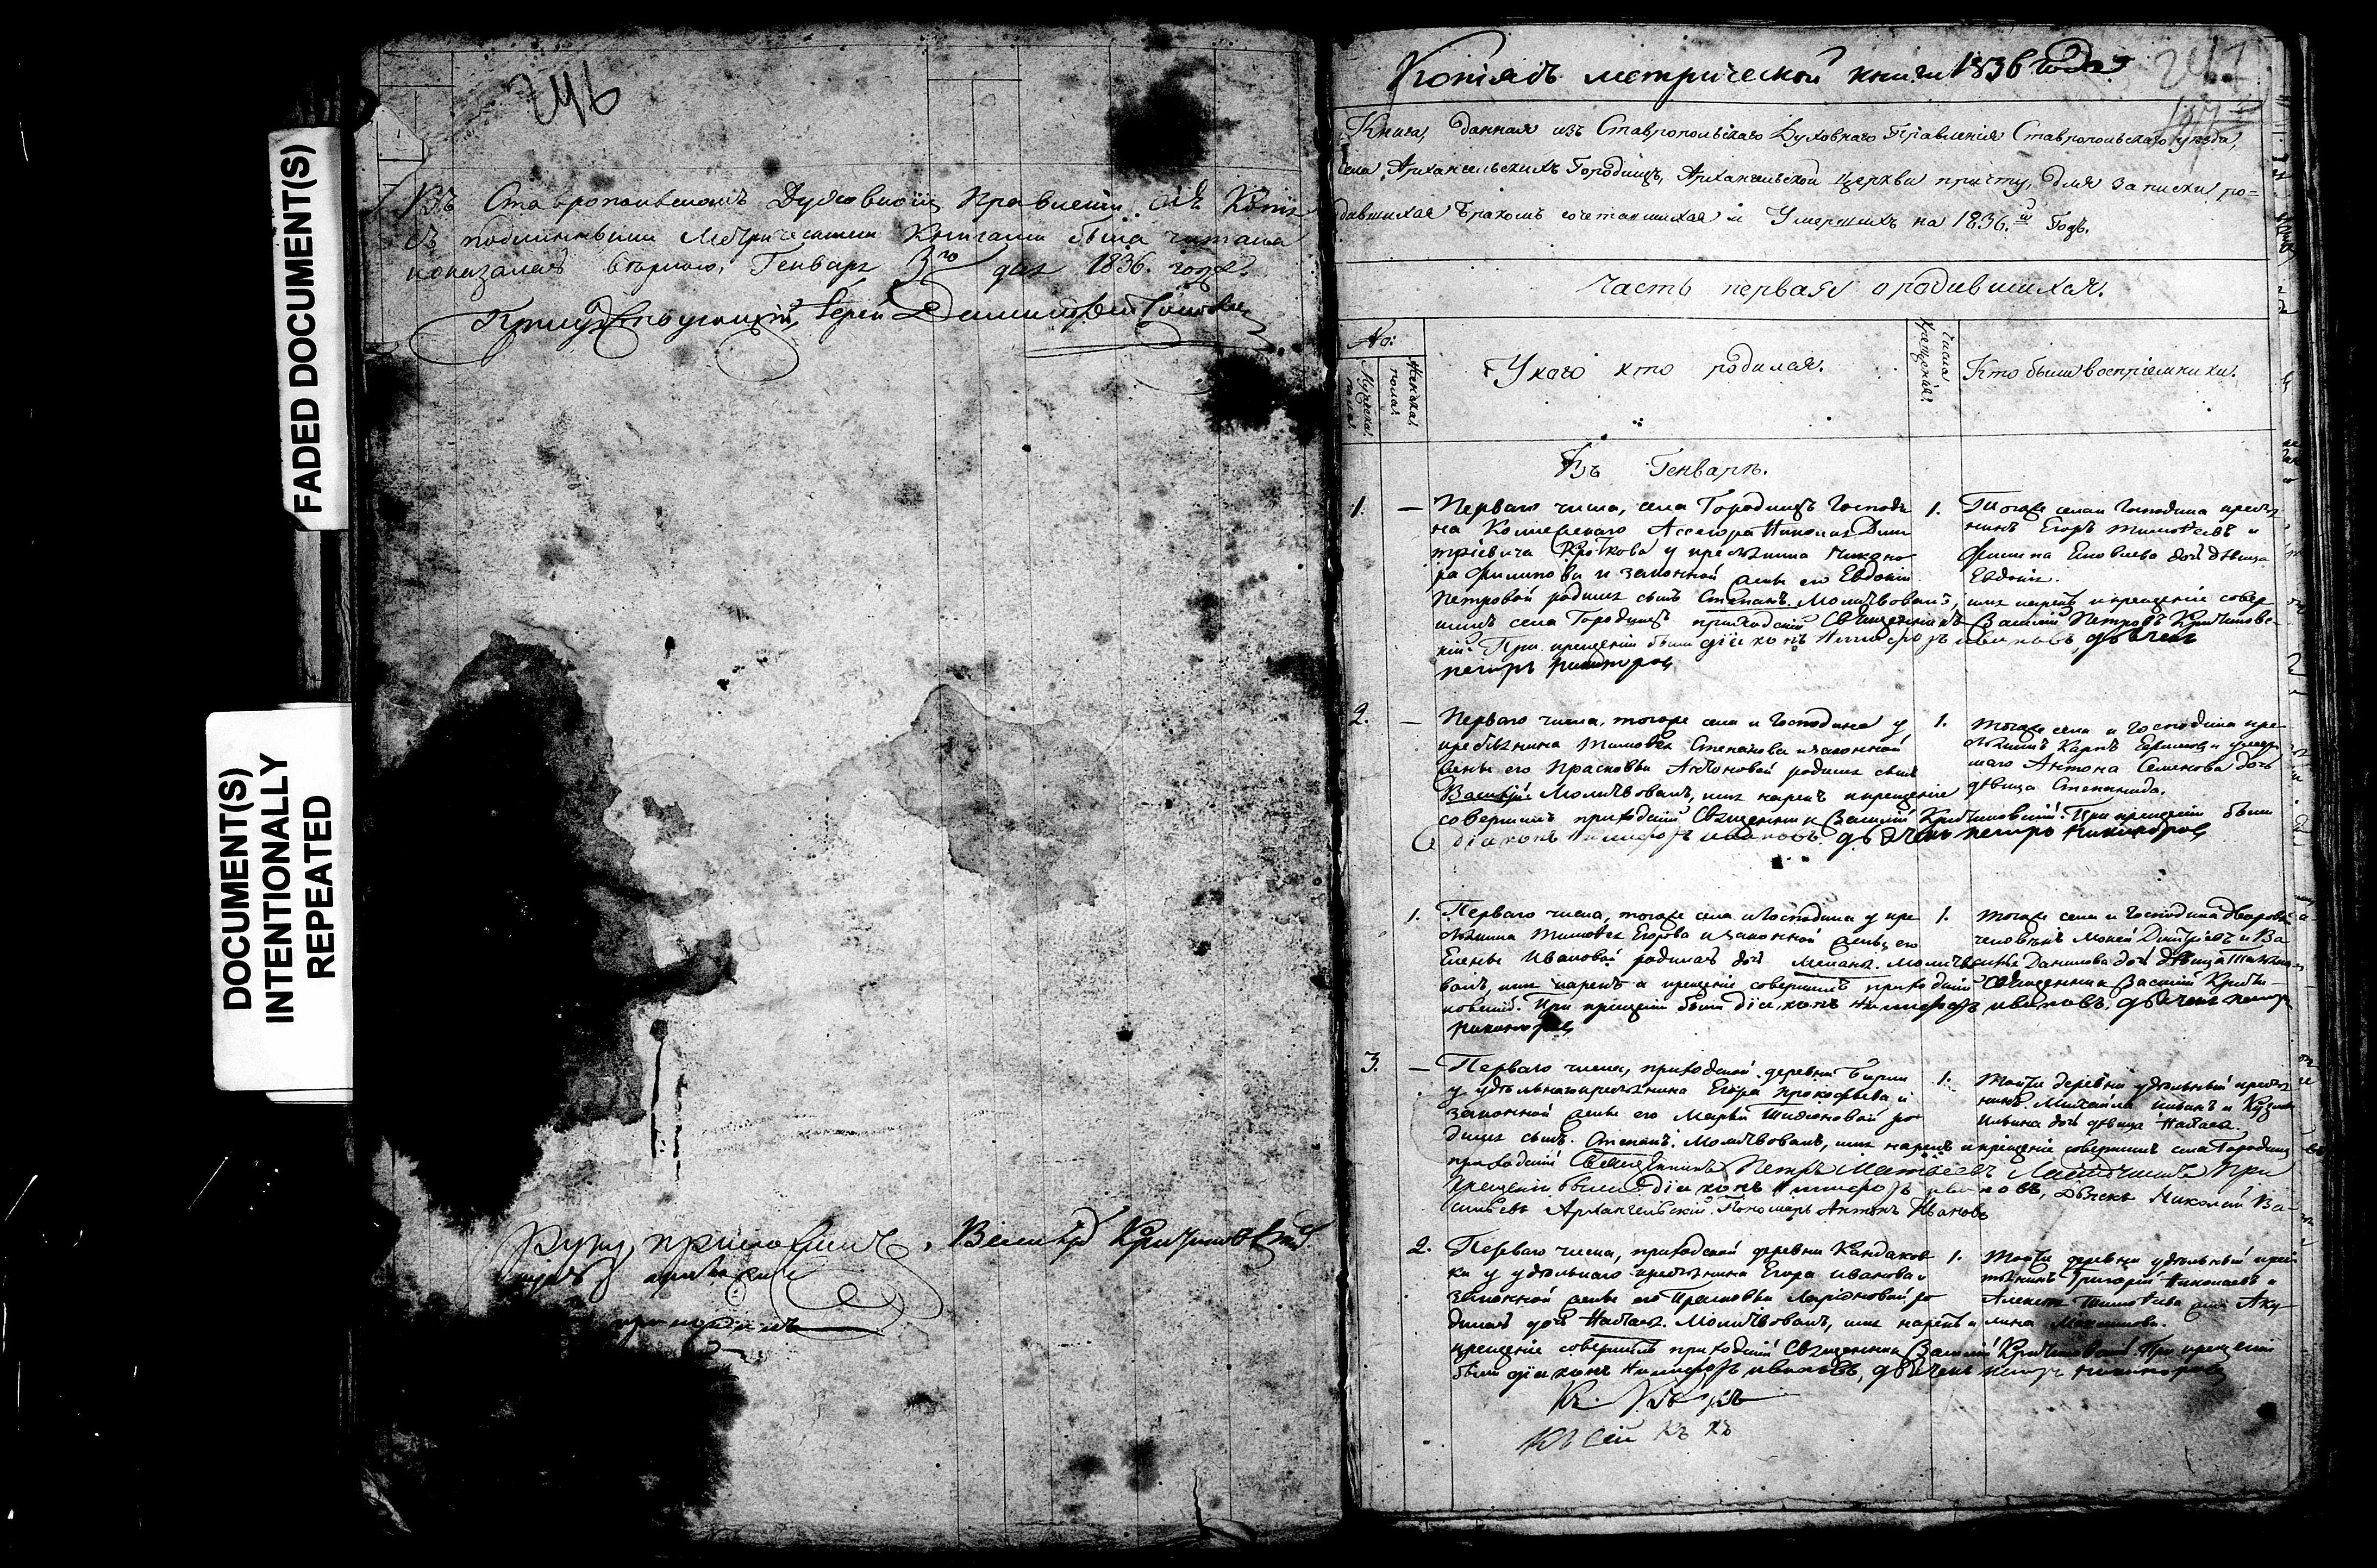 FADED DOCUMENT(S)
DOCUMENT(S)
INTENTIONALLY
REPEATED
246
Въ Ставропольскомъ Духовномъ Правленіи сія Копія
съ подлинными Метрическими Книгами была читана
и оказалась вѣрною, Генваря 3го дня 1836. года.
Присутствующій, Іерей
руку приложилъ. Василій Кричиновскій
Копія съ метрической книги 1836 года
247
Книга, данная изъ Ставропольскаго Духовнаго Правленія Ставропольскаго уѣзда,
села Архангельскихъ Городищъ, Архангельской церкви причту, для записки ро=
дившихся Бракомъ сочетавшихся и Умершихъ на 1836й Годъ.
Часть первая о родившихся.
No:
Мужеска пола
Женска пола
У кого кто родился.
Числа крещенія
Кто были воспріемники.
Въ Генварѣ.
1. — Перваго числа, села Городищъ Господи
на Коллежскаго Ассесора Николая Дми
тріевича Кроткова у крестьянина Никано
ра Филипова и законной жены его Евдокіи
Петровой родился сынъ Степанъ. Молитвовалъ, имя нарекъ и крещеніе совер
шилъ села Городищъ приходскій Священникъ Василій Петровъ Кричинов
скій. При крещеніи были діаконъ Никифоръ Ивановъ, дьячекъ
петръ Никифоровъ
1. Тогоже села и Господина кресть
янинъ Егоръ Тимофеевъ и
дочь дѣвица
Евдокія.
2. — Перваго числа, тогоже села и Господина у
крестьянина Тимофея Степанова и законной
жены его Прасковьи Антоновой родился сынъ
Василій. Молитвовалъ, имя нарекъ и крещеніе
совершилъ приходскій Священникъ Василій Кричиновскій. При крещеніи были
діаконъ Никифоръ Ивановъ. дьячекъ петръ Никифоровъ
1. Тогоже села и Господина кре
стьянинъ Карпъ и умер
шаго Антона Семенова дочь
дѣвица Степанида.
1. Перваго числа, тогоже села и Господина у кре
стьянина Тимофея Егорова и законной жены его
Елены Ивановой родилась дочь Меланія. Молитво
валъ, имя нарекъ и крещеніе совершилъ приходскій Священникъ Василій Кричи
новскій. При крещеніи были діаконъ Никифоръ Ивановъ, дьячекъ петръ
Никифоровъ
1. Тогоже села и Господина дворовой
человѣкъ Мокей Дмитріевъ и Ва
силья Данилова дочь дѣвица Татьяна
3. — Перваго числа, приходской деревни Бирли
у удѣльнаго крестьянина Егора Прокофьева и
законной жены его Марьи Тихоновой ро
дился сынъ. Степанъ. Молитвовалъ, имя нарекъ и крещеніе совершилъ села Городищъ
приходскій Священникъ Петръ Матвеевъ При
крещеніи были діаконъ Никифоръ Ивановъ, Дьячекъ Николай Ва-
сильевъ Архангельскій. Пономарь Антонъ Ивановъ
1. Тойже деревни удѣльный кресть
янинъ Михаила и Кузмы
Ильина дочь дѣвица Наталья.
2. Перваго числа, приходской деревни Кандаков
ки у удѣльнаго крестьянина Егора Иванова и
законной жены его Прасковьи Ларіоновой ро
дилась дочь Наталья. Молитвовалъ, имя нарекъ и
крещеніе совершилъ приходскій Священникъ Василій Кричиновскій. При крещеніи
были діаконъ Никифоръ Ивановъ, дьячекъ петръ Никифоровъ
1. Тойже деревни удѣльный крес
тьянинъ Григорій Николаевъ и
Алексея Тимофеева жена Аку
лина Максимова.
Къ сей Къ Къ